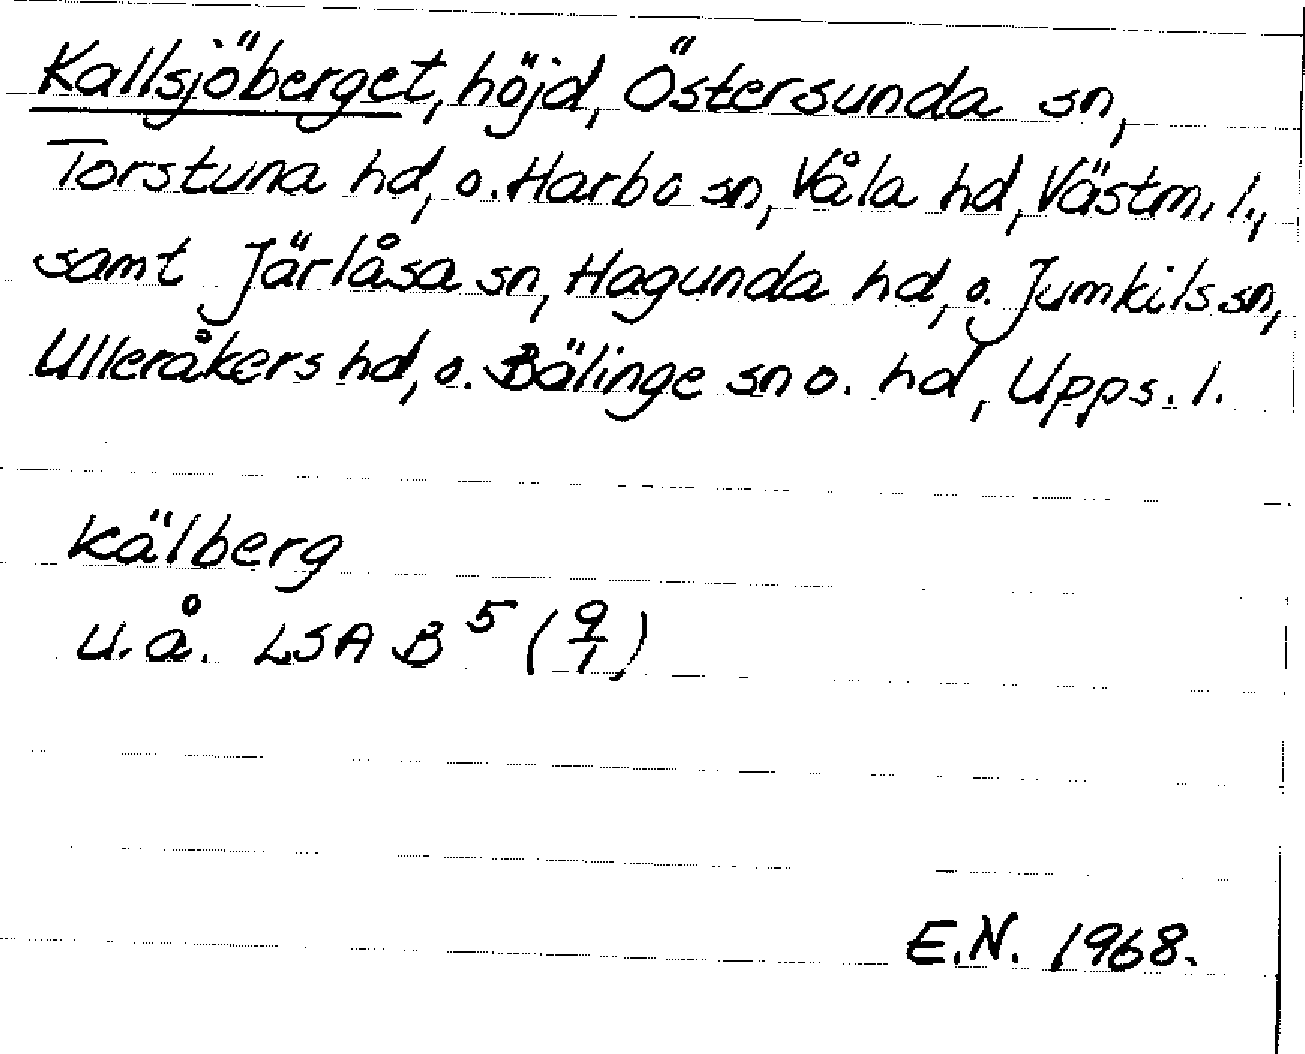 Kallsjöberget, höjd, Östersunda sn,
Torstuna hd, o. Harbo sn, Våla hd, Västm. l.,
samt Järlåsa sn, Hagunda hd, o. Jumkils sn,
Ulleråkers hd, o. Bälinge sn o. hd, Upps. l.
Kälberg
u.å. LSA B⁵ (9/1)
E.N. 1968.